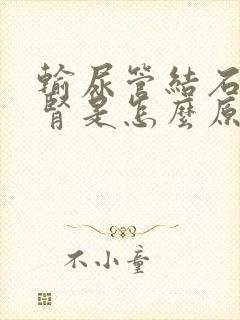 輸尿管結石
腎是怎麼原
不小童